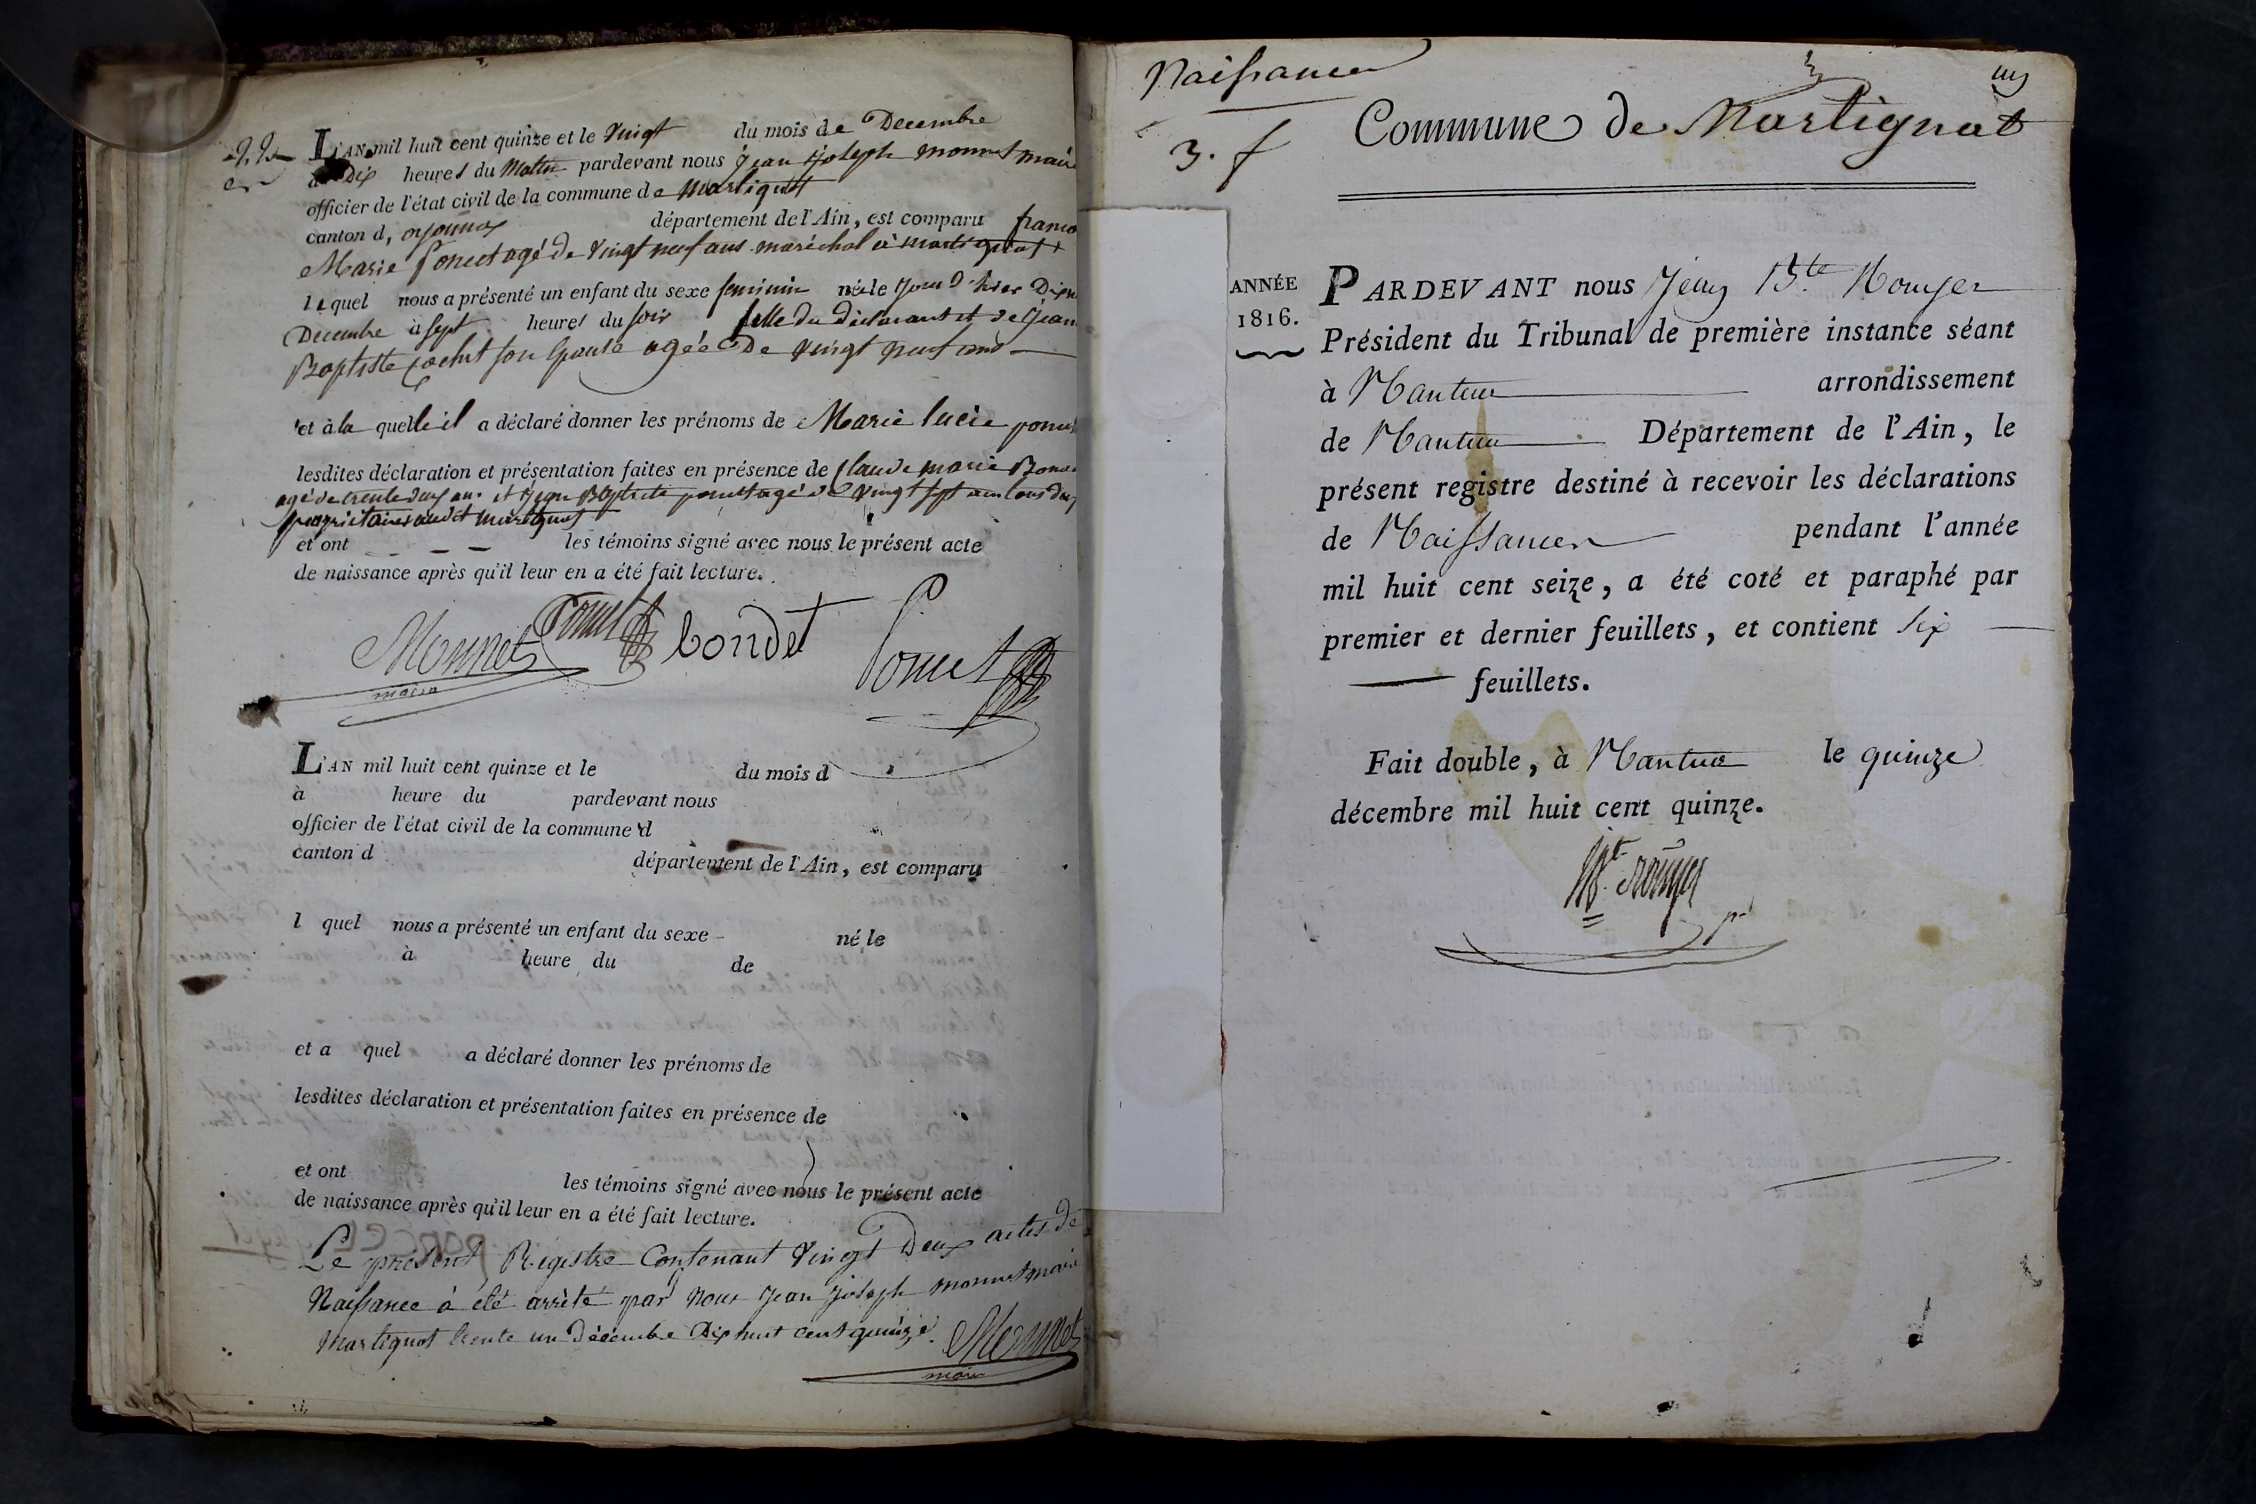 22
L'AN mil huit cent quinze et le vingt du mois de Decembre
à Dix heures du Matin pardevant nous jean joseph monnet maire
officier de l'état civil de la commune de Martignat
canton d'oyonnax département de l'Ain, est comparu
Marie Poncet agé de vingt neuf ans maréchal à martignat
lequel nous a présenté un enfant du sexe feminin née le jour d'hier Dix
Decembre à sept heures du soir fille du déclarant et de jean
Baptiste son epouse agée De vingt neuf ans
et à la quelle il a déclaré donner les prénoms de Marie lucie poncet
lesdites déclaration et présentation faites en présence de Claude marie
agé de trente deux ans et jean Baptiste poncet agé de vingt sept ans tous deux
propriétaires audit martignat
et ont les témoins signé avec nous le présent acte
de naissance après qu'il leur en a été fait lecture.
Monnet Poncet bondet Poncet
maire
L'AN mil huit cent quinze et le du mois d
à heure du pardevant nous
officier de l'état civil de la commune d
canton d département de l'Ain, est comparu
l quel nous a présenté un enfant du sexe né le
à heure du de
et a quel a déclaré donner les prénoms de
lesdites déclaration et présentation faites en présence de
et ont les témoins signé avec nous le présent acte
de naissance après qu'il leur en a été fait lecture.
Le présent Registre Contenant vingt Deux actes de
Naissance à été arrêté par Nous jean joseph monnet maire
Martignat trente un Décembre Dix huit cent quinze. Monnet
maire
Naissances
3. f
Commune de Martignat
ANNÉE
1816.
PARDEVANT nous Jean B.te Rouyer
Président du Tribunal de première instance séant
à Nantua arrondissement
de Nantua Département de l'Ain, le
présent registre destiné à recevoir les déclarations
de Naissances pendant l'année
mil huit cent seize, a été coté et paraphé par
premier et dernier feuillets, et contient six
feuillets.
Fait double, à Nantua le quinze
décembre mil huit cent quinze.
Rouyer